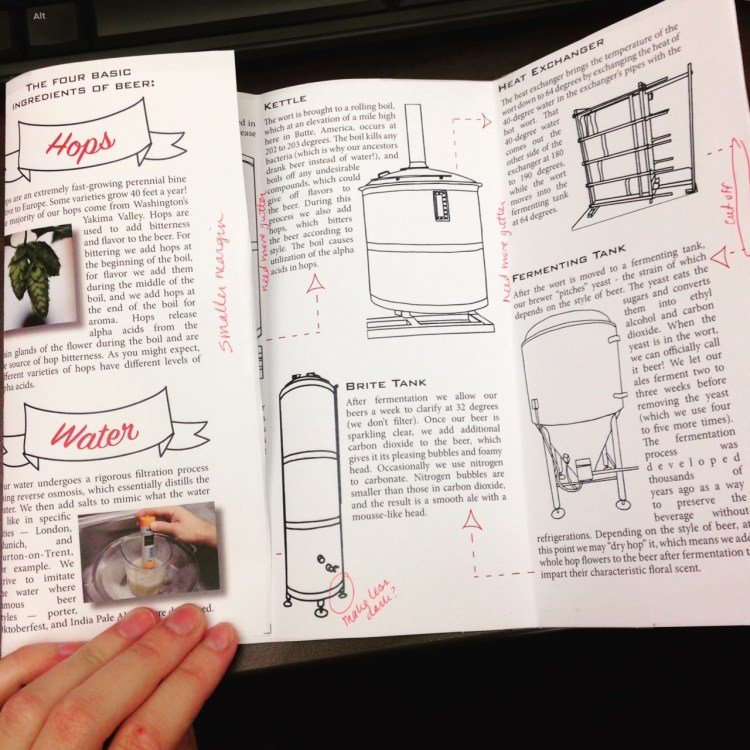 Alt
THE FOUR BASIC
INGREDIENTS OF BEER:
Hops
ps are an extremely fast-growing perennial bine
to Europe. Some varieties grow 40 feet a year!
majority of our hops come from Washington's
Yakima Valley. Hops are
used to add bitterness
and flavor to the beer. For
bittering we add hops at
the beginning of the boil,
for flavor we add them
during the middle of the
boil, and we add hops at
the end of the boil for
aroma. Hops release
alpha acids from the
glands of the flower during the boil and are
source of hop bitterness. As you might expect,
fferent varieties of hops have different levels of
pha acids.
smaller margin
Water
ur water undergoes a rigorous filtration process
ing reverse osmosis, which essentially distills the
ater. We then add salts to mimic what the water
like in specific
nes — London,
unich, and
urton-on-Trent,
r example. We
rive to imitate
e water where
mous beer
yles — porter,
ktoberfest, and India Pale
KETTLE
The wort is brought to a rolling boil,
which at an elevation of a mile high
here in Butte, America, occurs at
202 to 203 degrees. The boil kills any
bacteria (which is why our ancestors
drank beer instead of water!), and
boils off any undesirable
compounds, which could
give off flavors to
the beer. During this
process we also add
hops, which bitters
the beer according to
style. The boil causes
utilization of the alpha
acids in hops.
need more gutter
BRITE TANK
After fermentation we allow our
beers a week to clarify at 32 degrees
(we don't filter). Once our beer is
sparkling clear, we add additional
carbon dioxide to the beer, which
gives it its pleasing bubbles and foamy
head. Occasionally we use nitrogen
to carbonate. Nitrogen bubbles are
smaller than those in carbon dioxide,
and the result is a smooth ale with a
mouse-like head.
make less
dark?
HEAT EXCHANGER
The heat exchanger brings the temperature of the
wort down to 64 degrees by exchanging the heat of
40-degree water in the exchanger's pipes with the
hot wort. That
40-degree water
comes out the
other side of the
exchanger at 180
to 190 degrees,
while the wort
moves into the
fermenting tank
at 64 degrees.
need more gutter
cut off
FERMENTING TANK
After the wort is moved to a fermenting tank,
our brewer "pitches" yeast - the strain of which
depends on the style of beer. The yeast eats the
sugars and converts
them into ethyl
alcohol and carbon
dioxide. When the
yeast is in the wort,
we can officially call
it beer! We let our
ales ferment two to
three weeks before
removing the yeast
(which we use four
to five more times).
The fermentation
process was
developed
thousands of
years ago as a way
to preserve the
beverage without
refrigerations. Depending on the style of beer, at
this point we may "dry hop" it, which means we add
whole hop flowers to the beer after fermentation t
impart their characteristic floral scent.